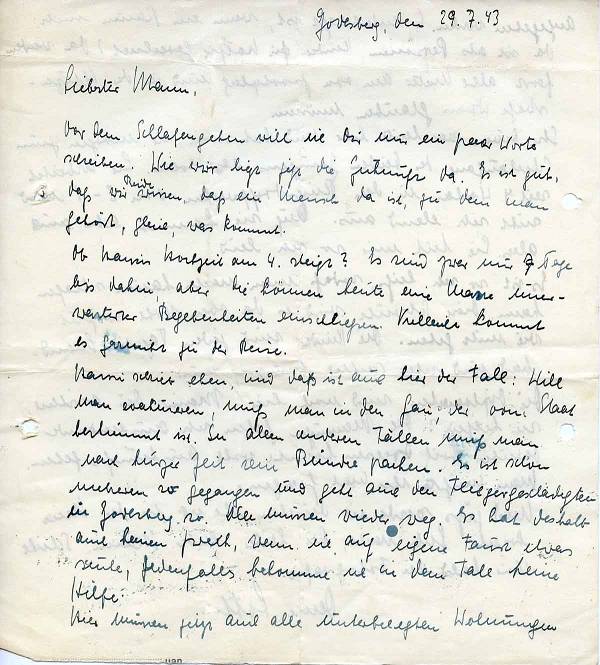 Godesberg, den 29.7.43
Liebster Mann,
Vor dem Schlafengehen will ich Dir nur ein paar Worte
schreiben. Wie wirr liegt jetzt die Zukunft da. Es ist gut,
daß wir beide wissen, daß ein Mensch da ist, zu dem man
gehört, gleich, was kommt.
Ob Hannis Hochzeit am 4. steigt? Es sind zwar nur 7 Tage
bis dahin, aber die können heute eine Masse uner-
warteter Begebenheiten einschließen. Vielleicht kommt
es garnicht zu der Reise.
Hanni schrieb eben, und daß ist auch hier der Fall: Will
man evakuieren, muß man in den Gau, der vom Staat
bestimmt ist. In allen anderen Fällen muß man
nach kurzer Zeit sein Bündel packen. Es ist schon
mehreren so gegangen und geht auch den Fliegergeschädigten
in Godesberg so. Alle müssen wieder weg. Es hat deshalb
auch keinen Zweck, wenn ich auf eigene Faust etwas
suche, jedenfalls bekomme ich in dem Falle keine
Hilfe.
Hier müssen jetzt auch alle unterbelegten Wohnungen